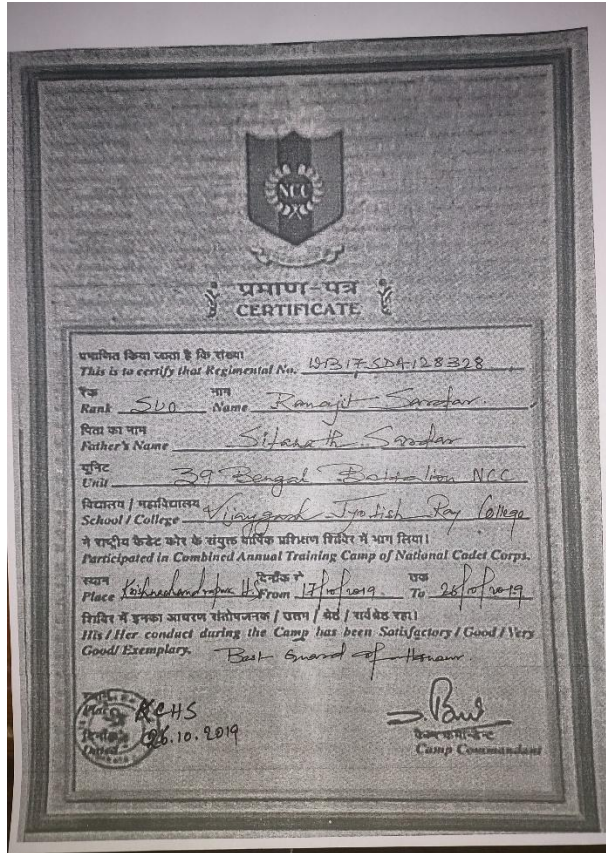 NCC
प्रमाण-पत्र
CERTIFICATE
प्रमाणित किया जाता है कि संख्या
This is to certify that Regimental No. WB17SDA128328
रैंक नाम
Rank SUO Name Ranajit Sardar.
पिता का नाम
Father's Name Sitanath Sardar
यूनिट
Unit 39 Bengal Battalion NCC
विद्यालय / महाविद्यालय
School / College Vijaygarh Jyotish Ray College
ने राष्ट्रीय कैडेट कोर के संयुक्त वार्षिक प्रशिक्षण शिविर में भाग लिया।
Participated in Combined Annual Training Camp of National Cadet Corps.
स्थान दिनाँक से तक
Place Krishnachandrapur H.S From 17/10/2019 To 26/10/2019
शिविर में इनका आचरण संतोषजनक / उत्तम / श्रेष्ठ / सर्वश्रेष्ठ रहा।
His / Her conduct during the Camp has been Satisfactory / Good / Very
Good/ Exemplary. Best Guard of Honour.
Place KCHS
दिनाँक
Dated 26.10.2019
कैम्प कमान्डेन्ट
Camp Commandant